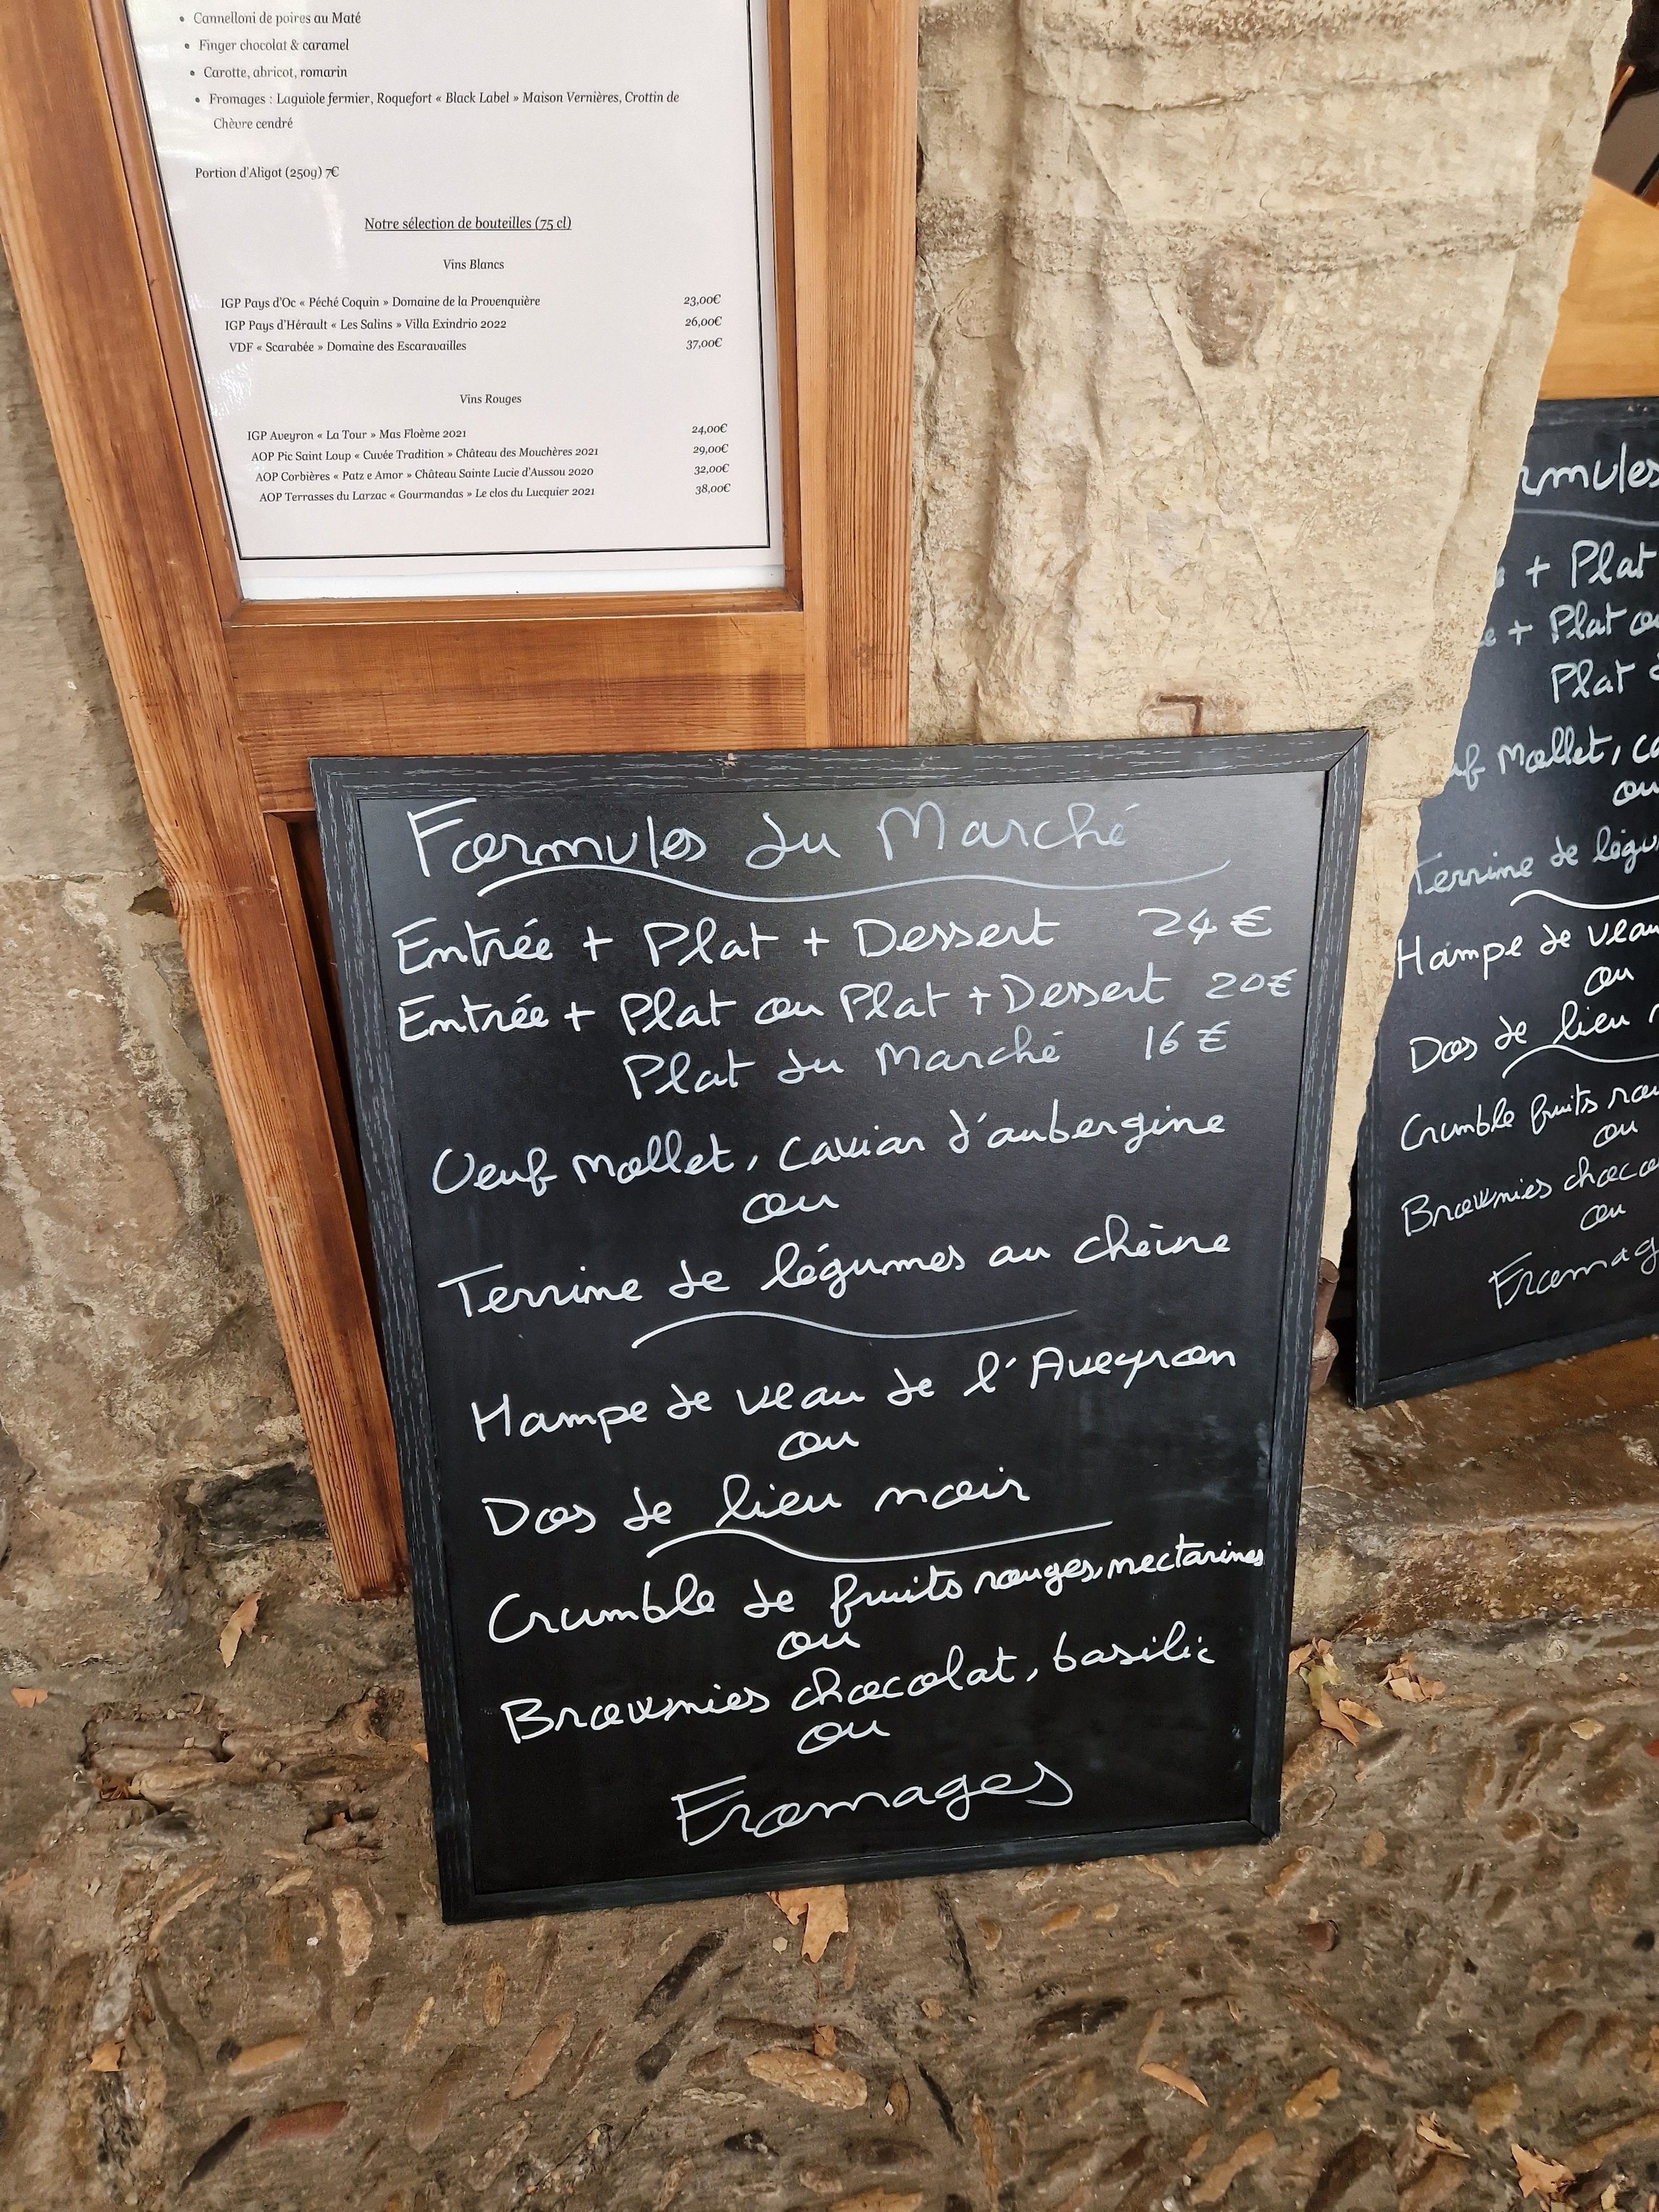 Cannelloni de poires au Maté
Finger chocolat & caramel
Carotte, abricot, romarin
Fromages : Laguiole fermier, Roquefort « Black Label » Maison Vernières, Crottin de
Chèvre cendré
Portion d'Aligot (250g) 7€
Notre sélection de bouteilles (75 cl)
Vins Blancs
IGP Pays d'Oc « Péché Coquin » Domaine de la Provenquière 23,00€
IGP Pays d'Hérault « Les Salins » Villa Exindrio 2022 26,00€
VDF « Scarabée » Domaine des Escaravailles 37,00€
Vins Rouges
IGP Aveyron « La Tour » Mas Floème 2021 24,00€
AOP Pic Saint Loup « Cuvée Tradition » Château des Mouchères 2021 29,00€
AOP Corbières « Patz e Amor » Château Sainte Lucie d'Aussou 2020 32,00€
AOP Terrasses du Larzac « Gourmandas » Le clos du Lucquier 2021 38,00€
Formules du Marché
Entrée + Plat + Dessert 24 €
Entrée + Plat ou Plat + Dessert 20€
Plat du Marché 16 €
Oeuf mollet, caviar d'aubergine
ou
Terrine de légumes au chèvre
Hampe de veau de l'Aveyron
ou
Dos de lieu noir
Crumble de fruits rouges, nectarines
ou
Brownies chocolat, basilic
ou
Fromages
rmules
+ Plat
e + Plat ou
Plat
uf mollet, ca
ou
Terrine de légu
Hampe de veau
ou
Dos de lieu n
Crumble fruits rou
ou
Brownies choco
ou
Fromag